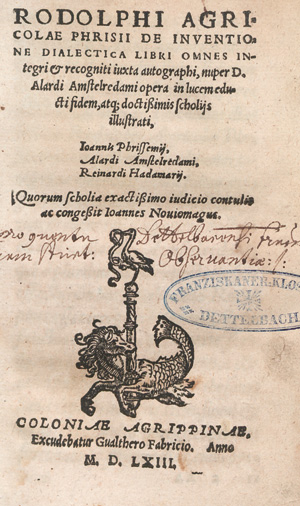 RODOLPHI AGRI-
COLAE PHRISII DE INVENTIO
NE DIALECTICA LIBRI OMNES IN-
tegri & recogniti iuxta autographi, nuper D.
Alardi Amstelredami opera in lucem edu-
cti fidem, atq; doctißimis scholijs
illustrati,
Ioannis Phrissemij,
Alardi Amstelredami,
Reinardi Hadamarij.
Quorum scholia exactißimo iudicio contulit
ac congeßit Ioannes Nouiomagus.
Observantiæ:
FRANZISKANER-KLOS
DETTELBACH
COLONIAE AGRIPPINAE,
Excudebatur Gualthero Fabricio. Anno
M. D. LXIII.